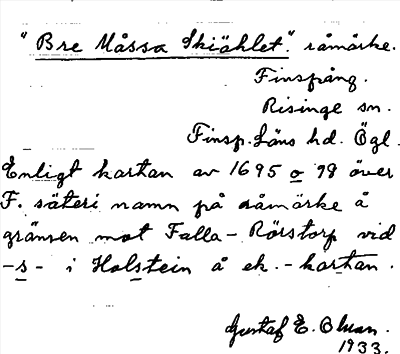 "Bre Måssa Skiählet". råmärke.
Finspång.
Risinge sn.
Finsp. Läns hd. Ögl.
Enligt kartan av 1695 o 98 över
F. säteri namn på råmärke å
gränsen mot Falla-Rörstorp vid
-s- i Holstein å ek.-kartan.
Gustaf E.
1933.